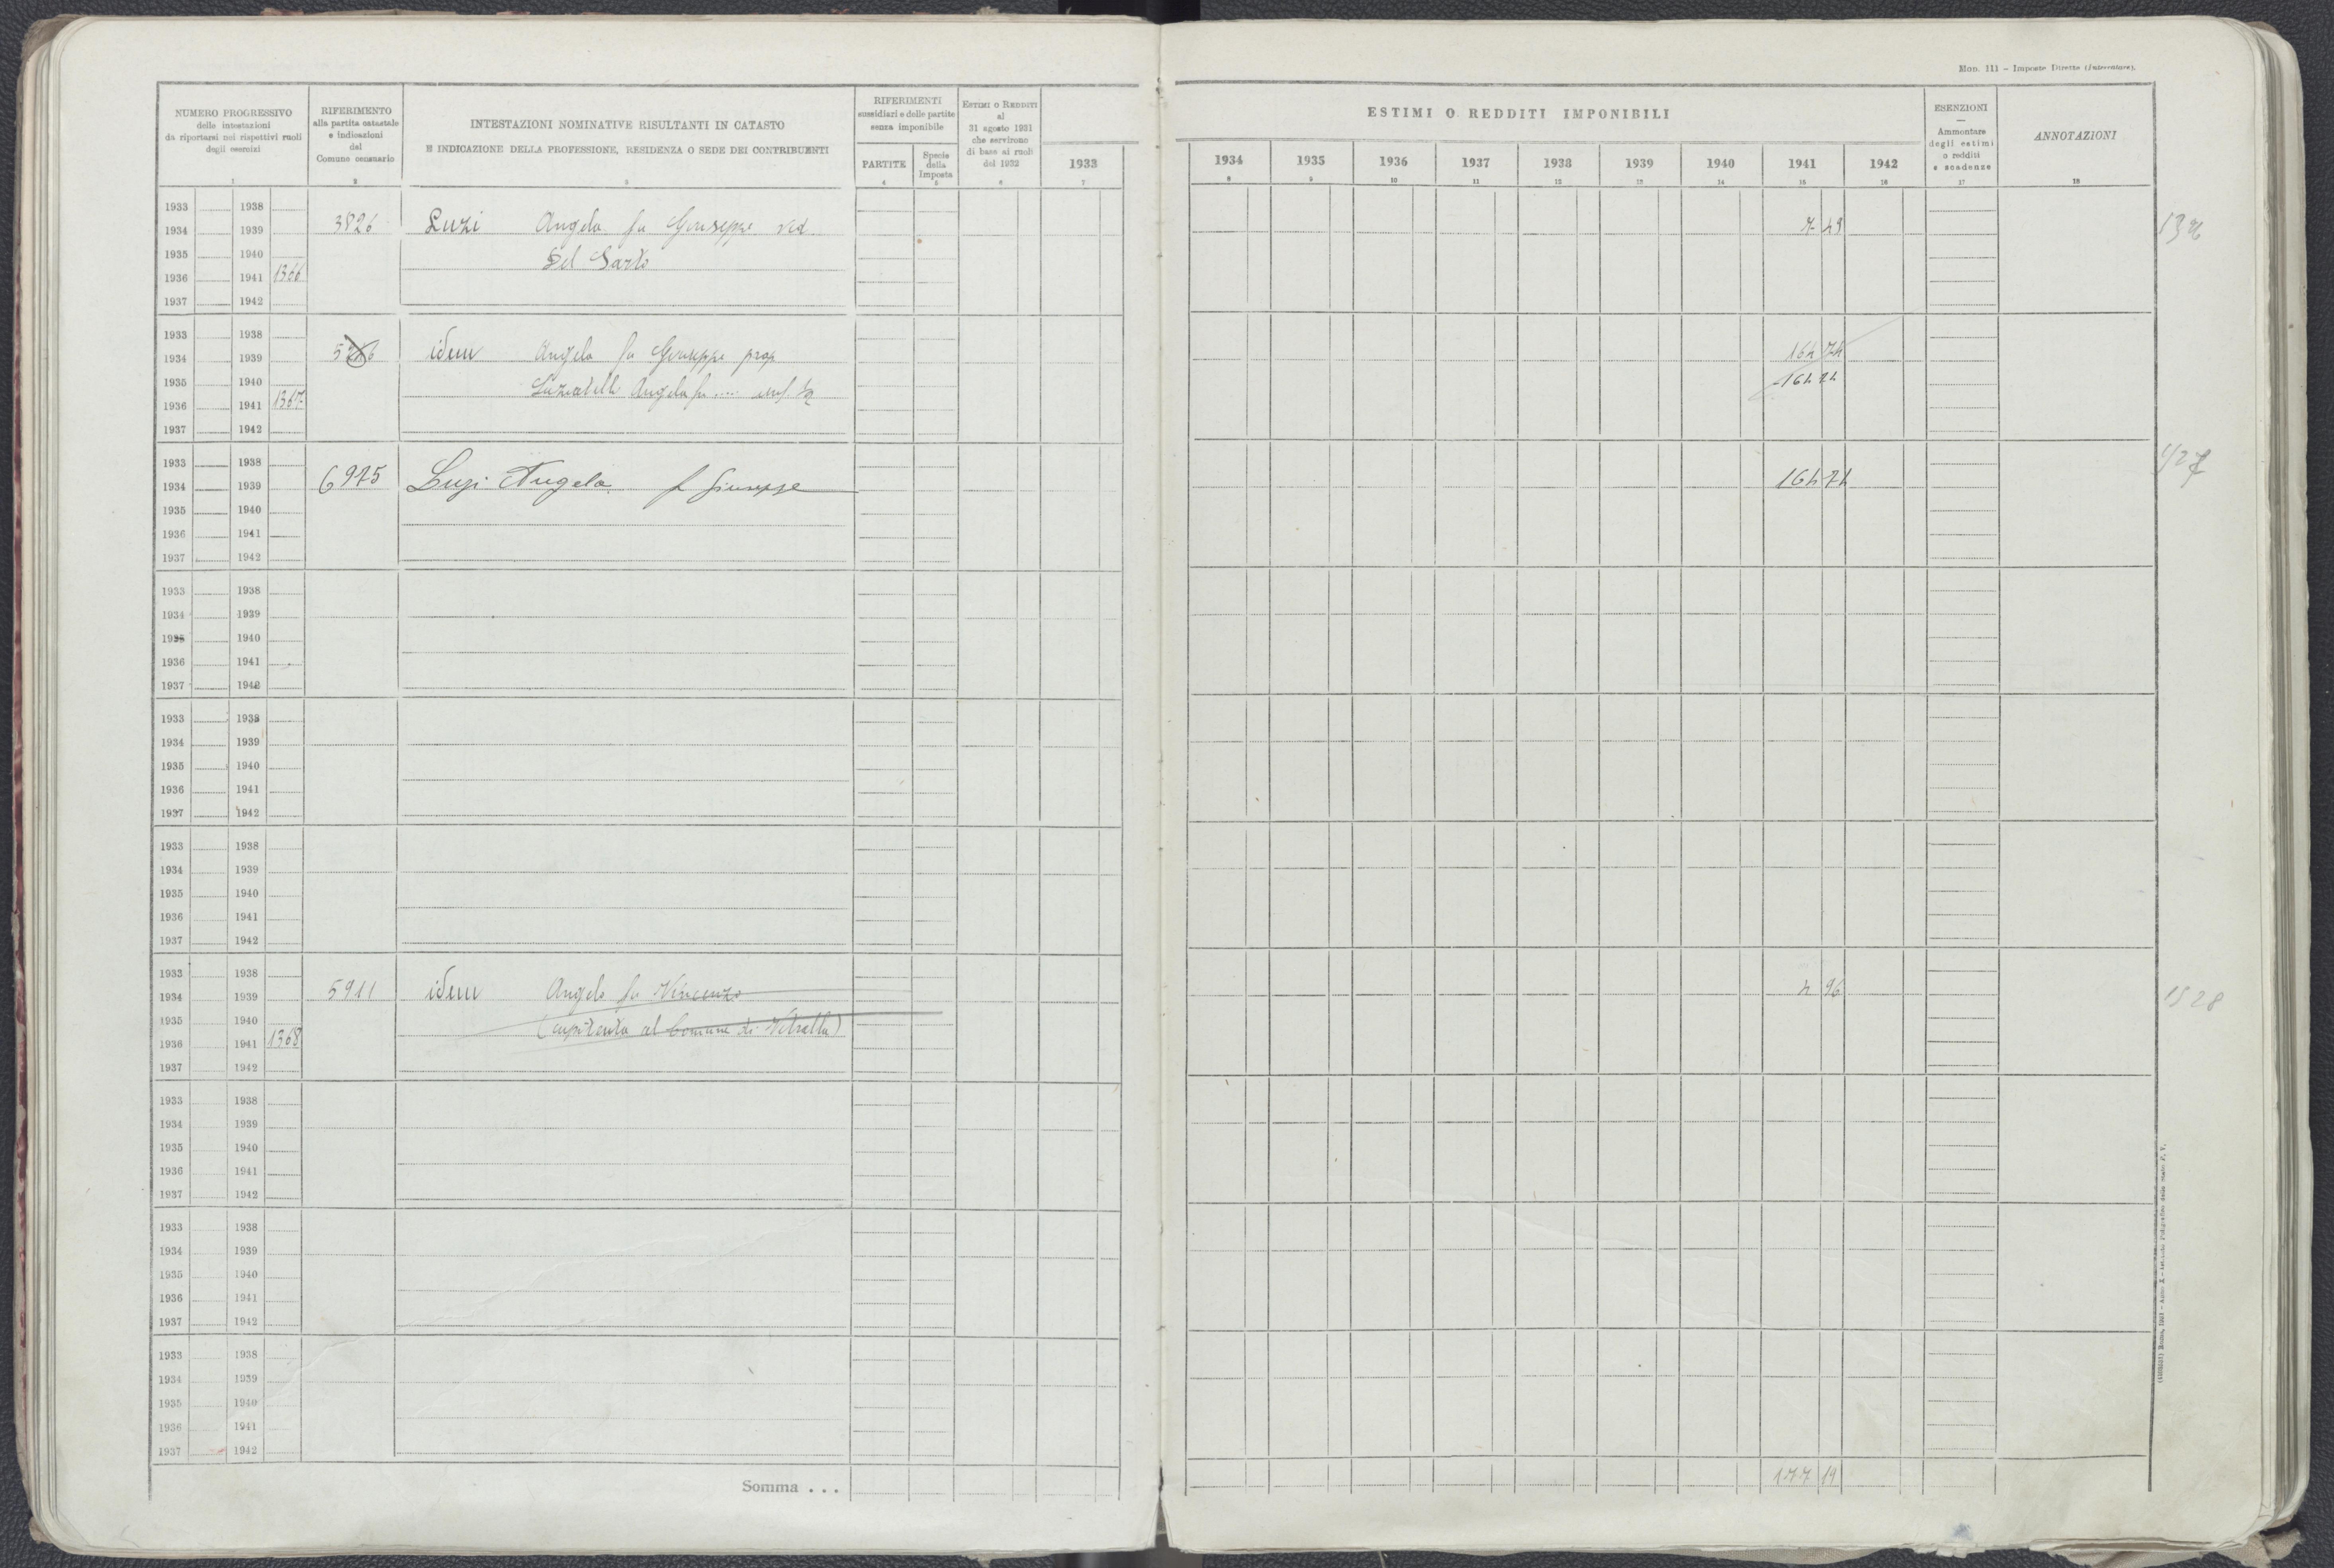 Mod. 111 – Imposte Dirette (Intercalare).
NUMERO PROGRESSIVO
delle intestazioni
da riportarsi nei rispettivi ruoli
degli esercizi
1
RIFERIMENTO
alla partita catastale
e indicazioni
del
Comune censuario
2
INTESTAZIONI NOMINATIVE RISULTANTI IN CATASTO
E INDICAZIONE DELLA PROFESSIONE, RESIDENZA O SEDE DEI CONTRIBUENTI
3
RIFERIMENTI
sussidiari e delle partite
senza imponibile
PARTITE
4
Specie
della
Imposta
5
ESTIMI O REDDITI
al
31 agosto 1931
che servirono
di base ai ruoli
del 1932
6
1933
7
ESTIMI O REDDITI IMPONIBILI
1934 1935 1936 1937 1938 1939 1940 1941 1942
8 9 10 11 12 13 14 15 16
ESENZIONI
—
Ammontare
degli estimi
o redditi
e scadenze
17
ANNOTAZIONI
18
1933 1938
1934 1939 3826 Luzi Angela fu Giuseppe ved. 7 43
1935 1940 Del Sarto
1936 1941 1366
1937 1942
1933 1938
1934 1939 idem Angela fu Giuseppe prop 164 74
1935 1940 Angela fu .... 164 74
1936 1941 1367
1937 1942
1933 1938
1934 1939 6975 Luzi Angela f Giuseppe 164 74
1935 1940
1936 1941
1937 1942
1933 1938
1934 1939
1935 1940
1936 1941
1937 1942
1933 1938
1934 1939
1935 1940
1936 1941
1937 1942
1933 1938
1934 1939
1935 1940
1936 1941
1937 1942
1933 1938
1934 1939 5911 idem Angelo fu Vincenzo 4 96 1528
1935 1940 al Comune di Vetralla)
1936 1941 1368
1937 1942
1933 1938
1934 1939
1935 1940
1936 1941
1937 1942
1933 1938
1934 1939
1935 1940
1936 1941
1937 1942
1933 1938
1934 1939
1935 1940
1936 1941
1937 1942
Somma . . . 177 14